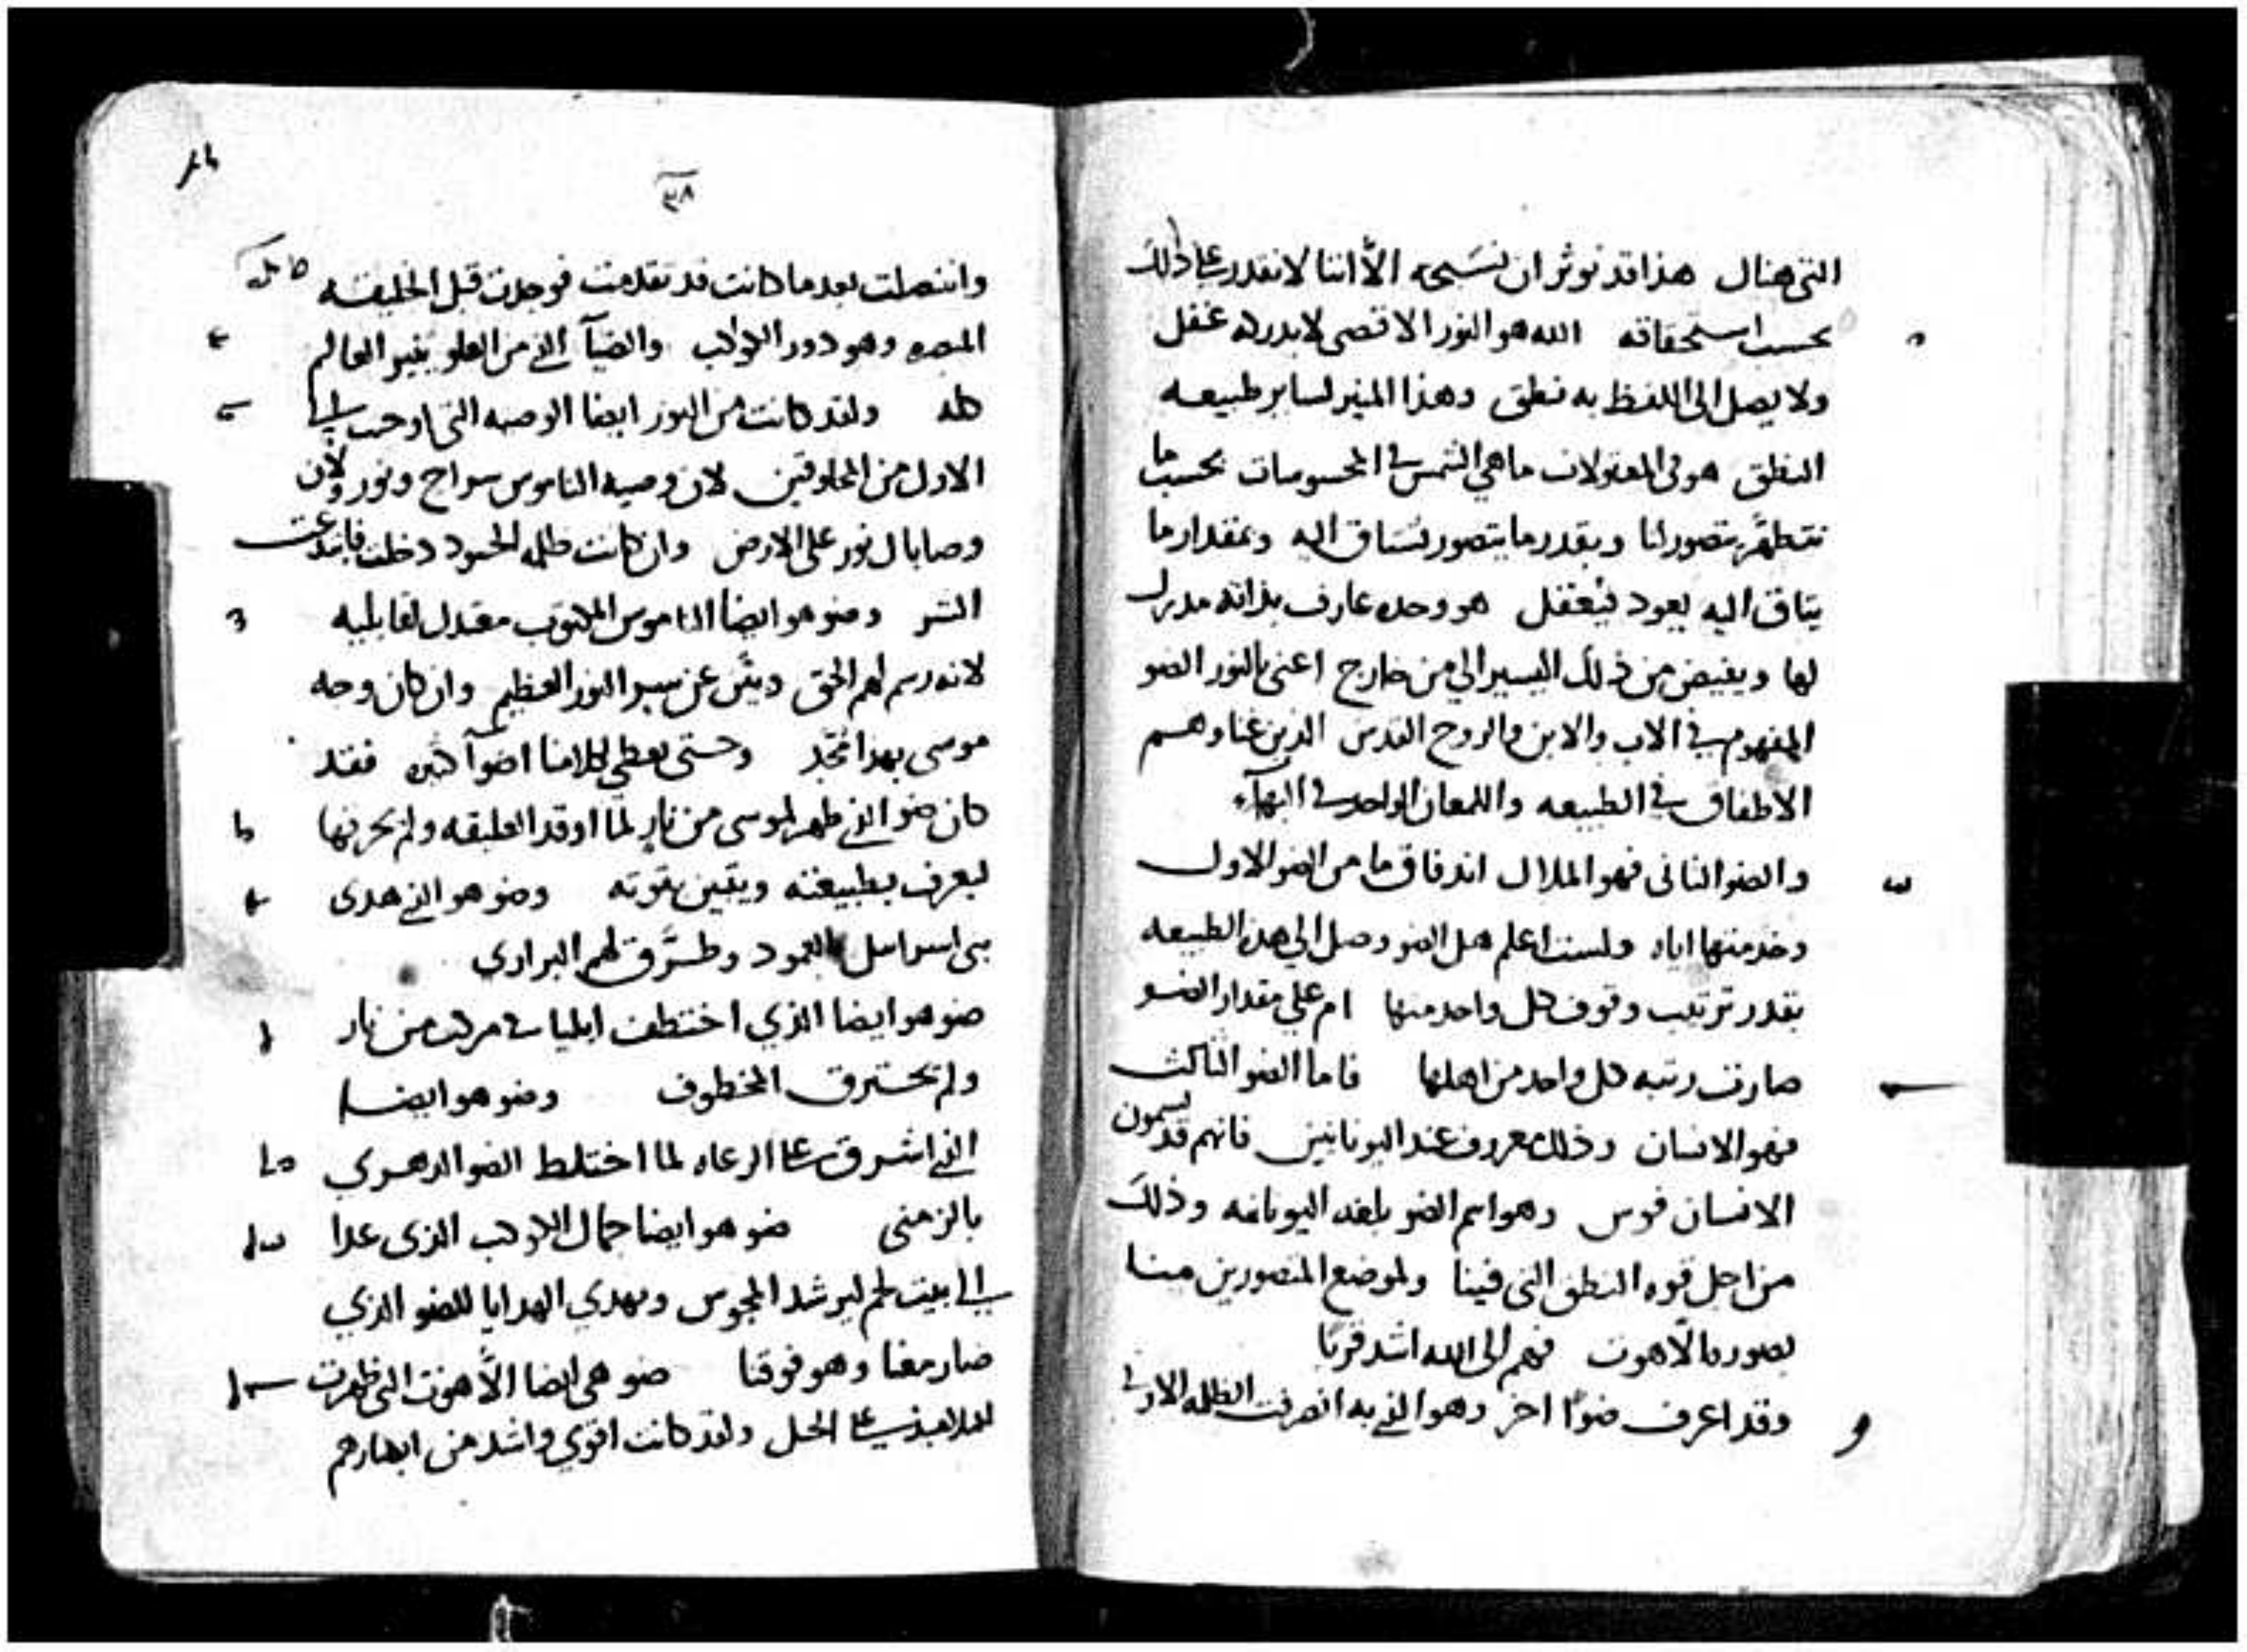 التي هنال هذا قد نوثر ان نسبحه الا اننا لا نقدر على ذلك
بحسب استحقاقه الله هو النور الاقصى لا يدركه عقل
ولا يصل الى اللفظ به نطق وهذا المنير لساير طبيعه
النطق هو في المعقولات ما هي الشمس في المحسوسات بحسب ما
نتطهر يتصور لنا وبقدر ما يتصور نشتاق اليه وبمقدار ما
يتاق اليه يعود فيعقل هو وحده عارف بذاته مدرك
لها ويفيض من ذلك اليسير الي من خارج اعني بالنور الضو
المفهوم في الاب والابن والروح القدس الذين غناوهم
الاطفاق في الطبيعه واللمعان الواحد في البهاء
والضو الثاني فهو الملاك اندفاق ما من الضو الاول
وخدمتها اياه ولست اعلم هل الضو وصل الي هذه الطبيعه
بقدر ترتيب وقوف كل واحد منها ام علي مقدار الضو
صارت رتبه كل واحد من اهلها فاما الضو الثالث
فهو الانسان وذلك معروف عند اليونانيين فانهم قد يسمون
الانسان فوس وهو اسم الضو بلغه اليونانيه وذلك
من اجل قوه النطق التي فينا ولموضع المتصورين منا
بصوره اللاهوت فهم الى الله اشد قربا
وقد اعرف ضوا اخر وهو الذي به انصرفت الظلمه الاولى
٣٨
وانفصلت بعد ما كانت قد تقدمت فوجدت قبل الخليقه
المبصره وهو دور الكواكب والضيآ الذي من العلو ينير العالم
كله ولقد كانت من النور ايضا الوصيه التي اوحيت الى
الاول من المخلوقين لان وصيه الناموس سراج ونور ولان
وصاياك نور على الارض وان كانت ظلمه الحسود دخلت فابتدعت
الشر وضو هو ايضا الناموس المكتوب مقتدل لقابليه
لانه رسم لهم الحق وبين عن سر النور العظيم وان كان وجه
موسى بهذا تمجد وحتى نعطي كلامنا اضوآ كثيره فقد
كان ضو الذي ظهر لموسى من نار لما اوقد العليقه ولم يحرقها
ليعرف بطبيعته ويتبين بقوته وضو هو الذي هدى
بني اسراييل بالعمود وطرق لهم البراري
ضو هو ايضا الذي اختطف ايليا في مركب من نار
ولم يحترق المخطوف وضو هو ايضا
الذي اشرق على الرعاه لما اختلط الضو الدهري
بالزمني ضو هو ايضا جمال الكوكب الذي عدا
الى بيت لحم ليرشد المجوس ويهدي الهدايا للضو الذي
صار معنا وهو فوقنا ضو هي ايضا اللاهوت التي ظهرت
للتلاميذ على الجبل ولقد كانت اقوي واشد من ابصارهم